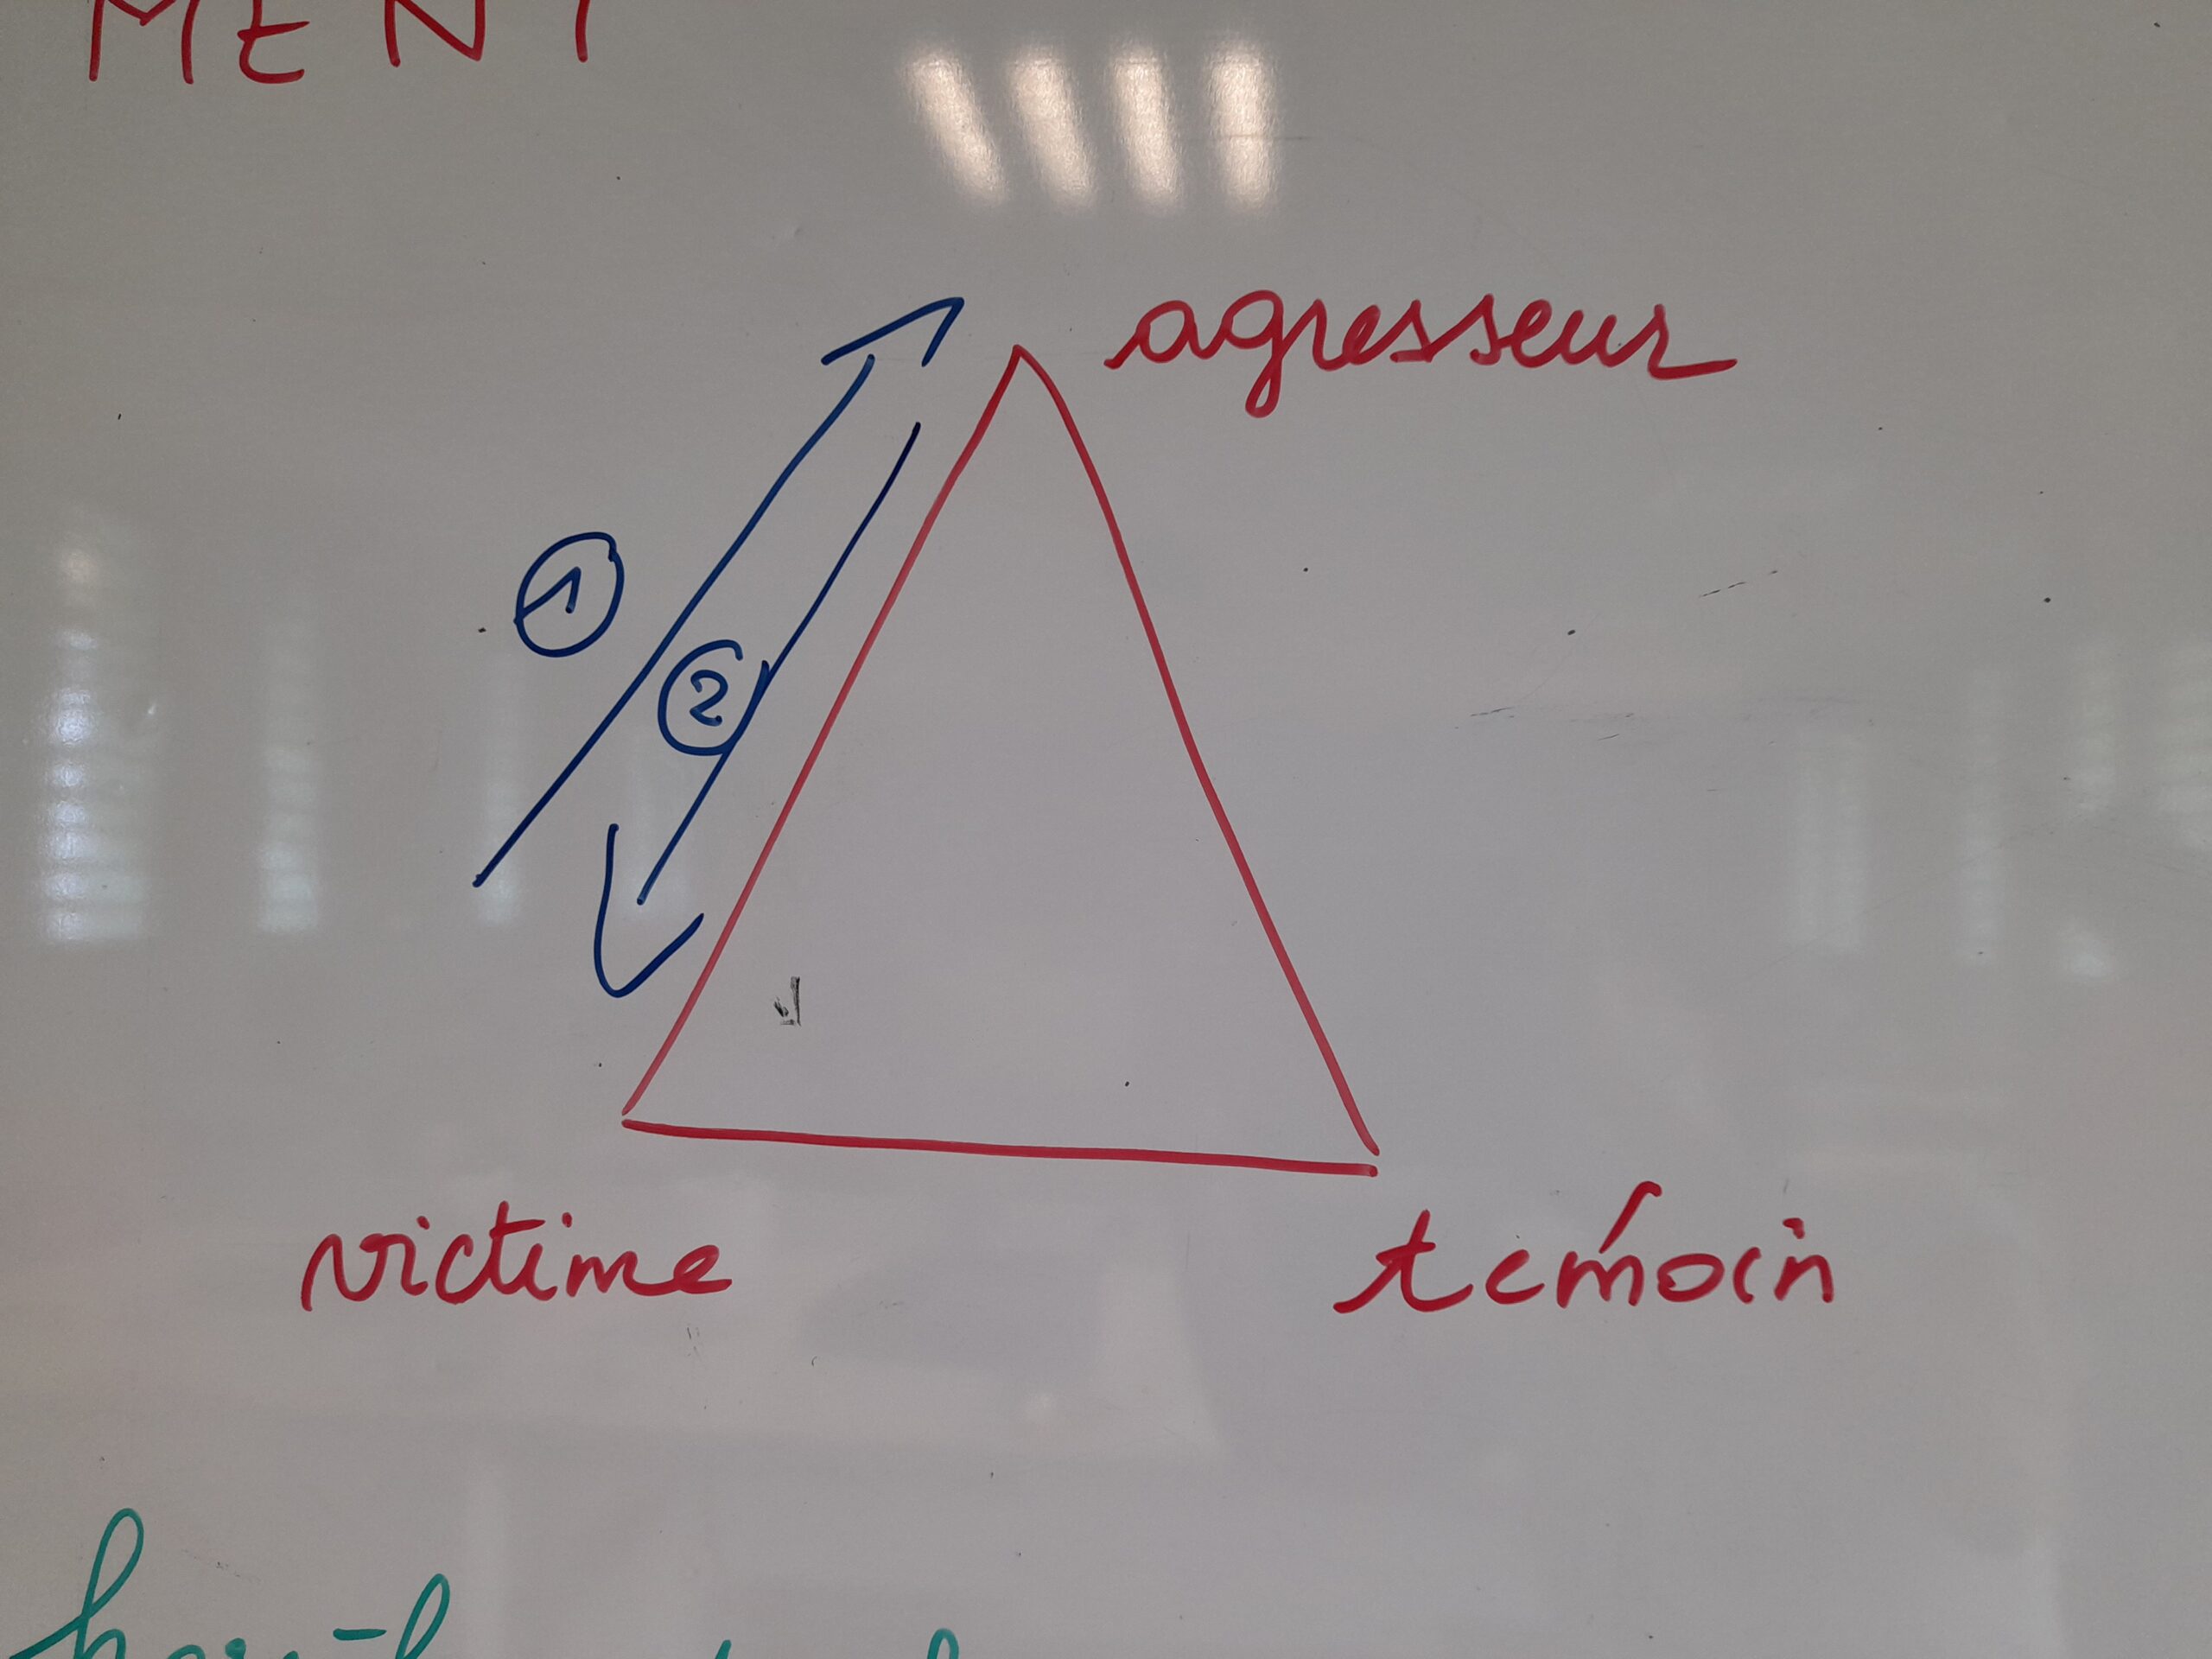 MENT
agresseur
1
2
victime
témoin